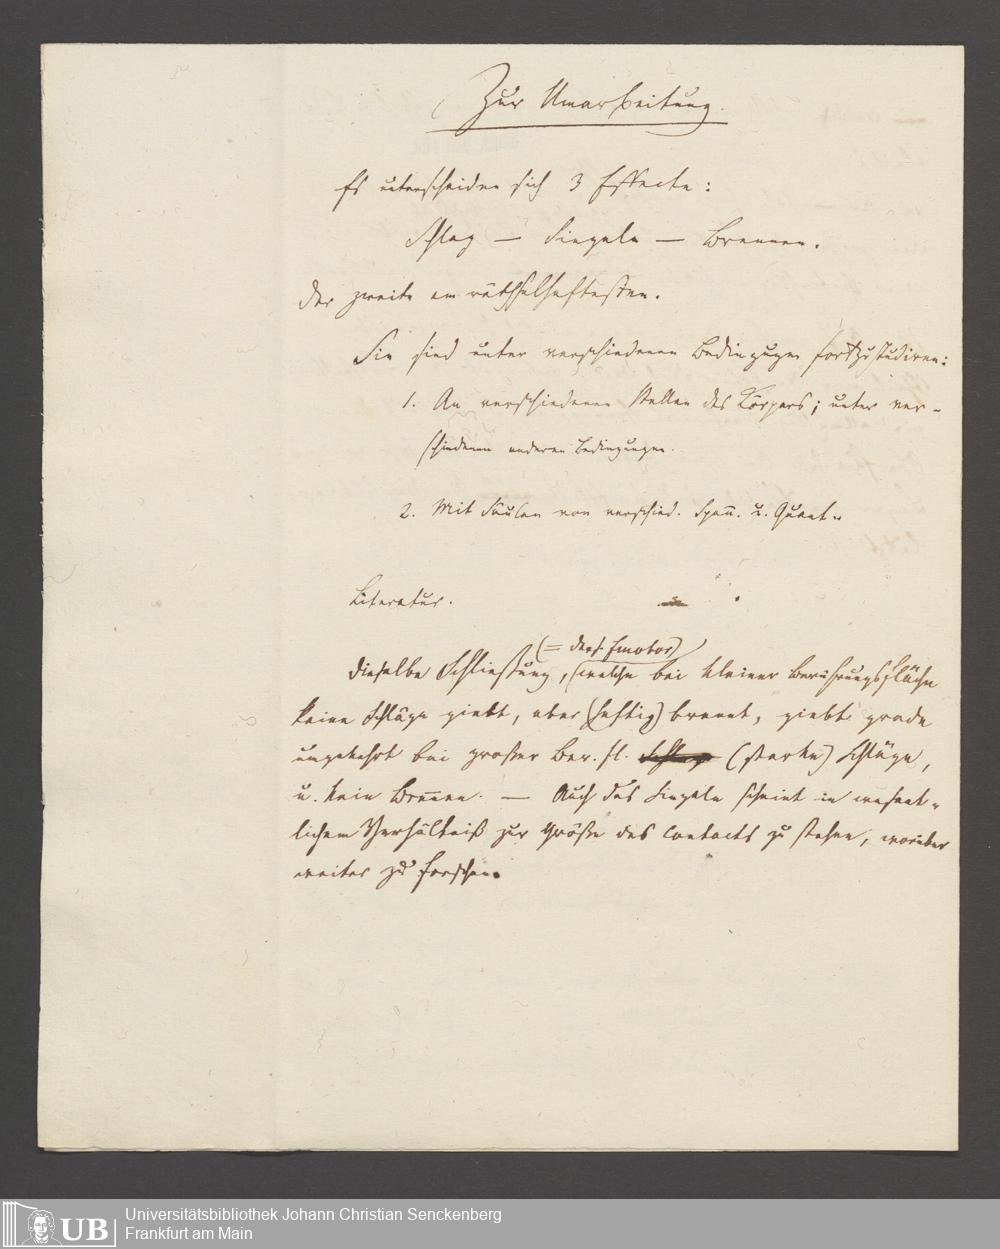 Zur Umarbeitung.
Es unterscheiden sich 3 Effecte:
Schlag — Singeln — Brennen.
Der zweite am räthselhaftesten.
Sie sind unter verschiedenen Bedingungen fortzustudiren:
1. An verschiedenen Stellen des Körpers; unter ver-
schiedenen anderen Bedingungen.
2. Mit Säulen von verschied. Span̅. u. Quant..
Literatur.
(= ders. Emotor)
Dieselbe Schließung, (welche bei kleiner Berührungsfläche
keine Schläge giebt, aber (heftig) brennt, giebt grade
umgekehrt bei großer Ber. fl. (starke) Schläge,
u. kein Bren̅en. — Auch das Singeln scheint in wesent-
lichem Verhältniß zur Größe des Contacts zu stehen, worüber
weiter zu forschen.
UB
Universitätsbibliothek Johann Christian Senckenberg
Frankfurt am Main